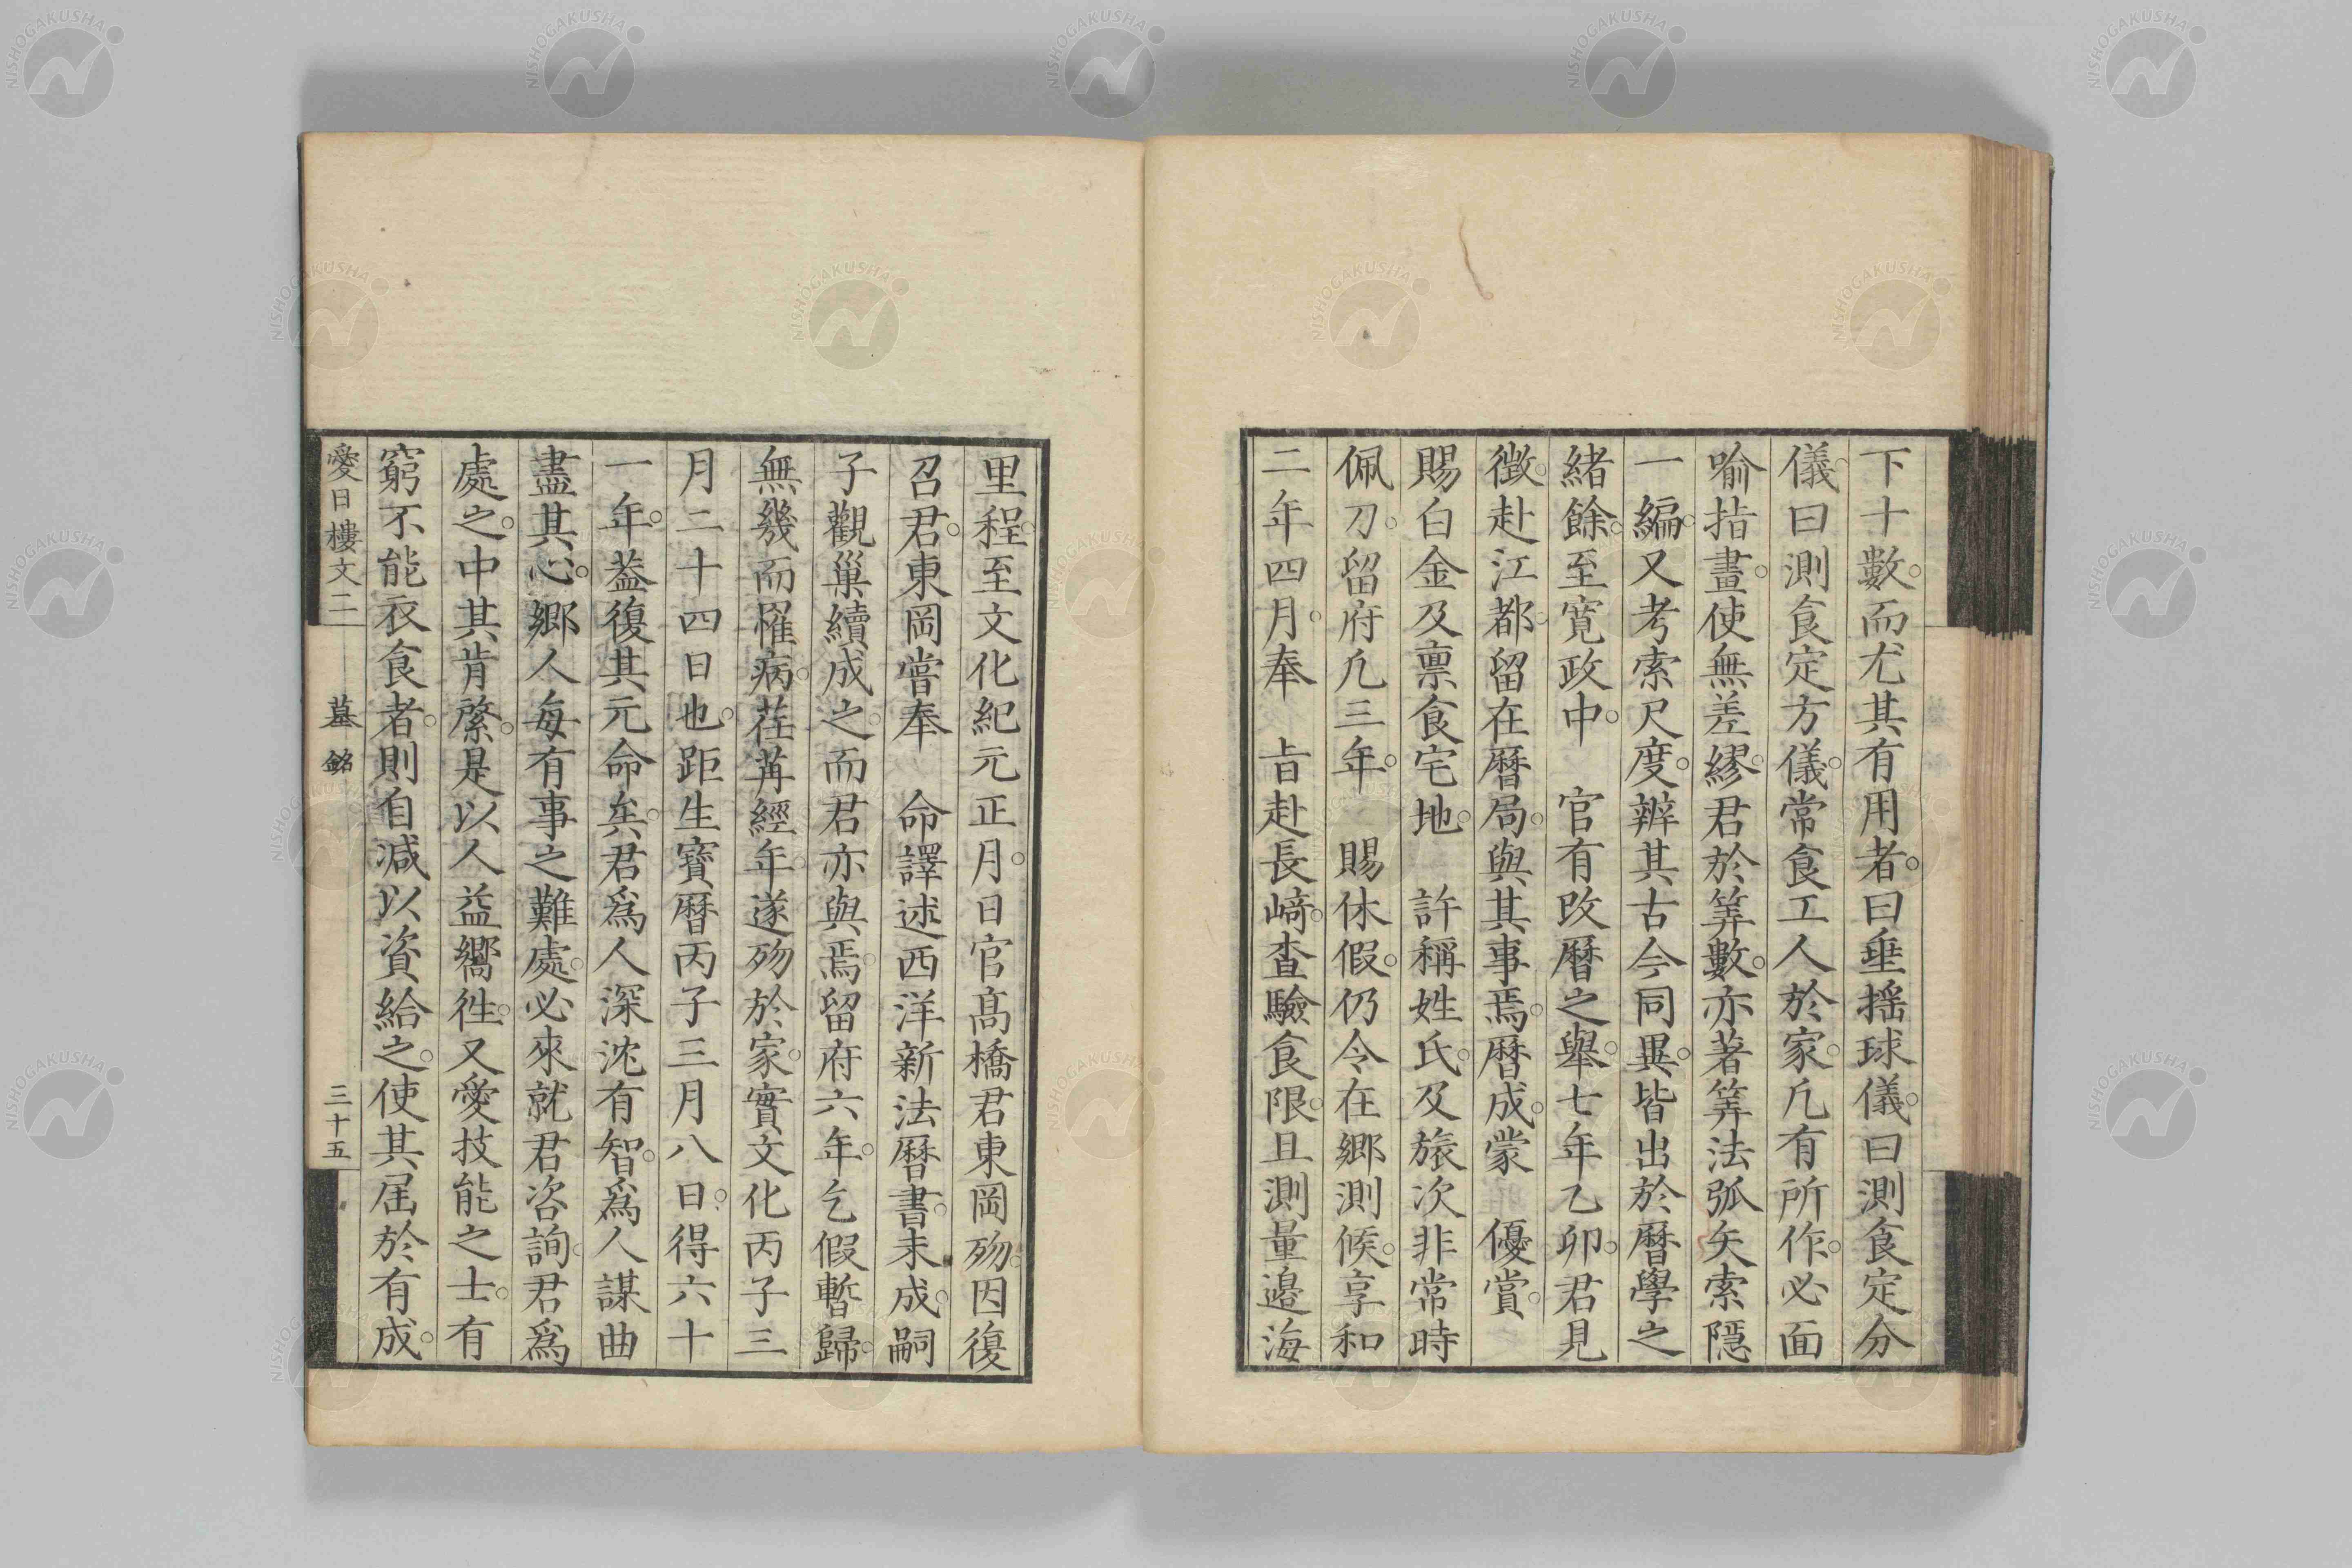 下十數而尤其有用者曰垂揺球儀曰測食定分
儀曰測食定方儀常食工人於家凡有所作必面
喻指畫使無差繆君於筭數亦著筭法弧矢索隱
一編又考索尺度辨其古今同異皆出於曆學之
緒餘至寬政中 官有改曆之舉七年乙卯君見
徴赴江都留在曆局與其事焉曆成蒙 優賞
賜白金及禀食宅地 許稱姓氏及旅次非常時
佩刀留府凡三年 賜休假仍令在郷測候享和
二年四月奉 旨赴長﨑査驗食限且測量邉海
里程至文化紀元正月日官髙橋君東岡歿因復
召君東岡嘗奉 命譯述西洋新法曆書未成嗣
子觀巢續成之而君亦與焉留府六年乞假暫歸
無幾而罹病荏苒經年遂歿於家實文化丙子三
月二十四日也距生寶曆丙子三月八日得六十
一年葢復其元命矣君爲人深沈有智爲人謀曲
盡其心郷人毎有事之難處必來就君咨詢君爲
處之中其肯綮是以人益嚮徃又愛技能之士有
窮不能衣食者則自減以資給之使其届於有成
愛日樓文二 墓銘 三十五
NISHOGAKUSHA